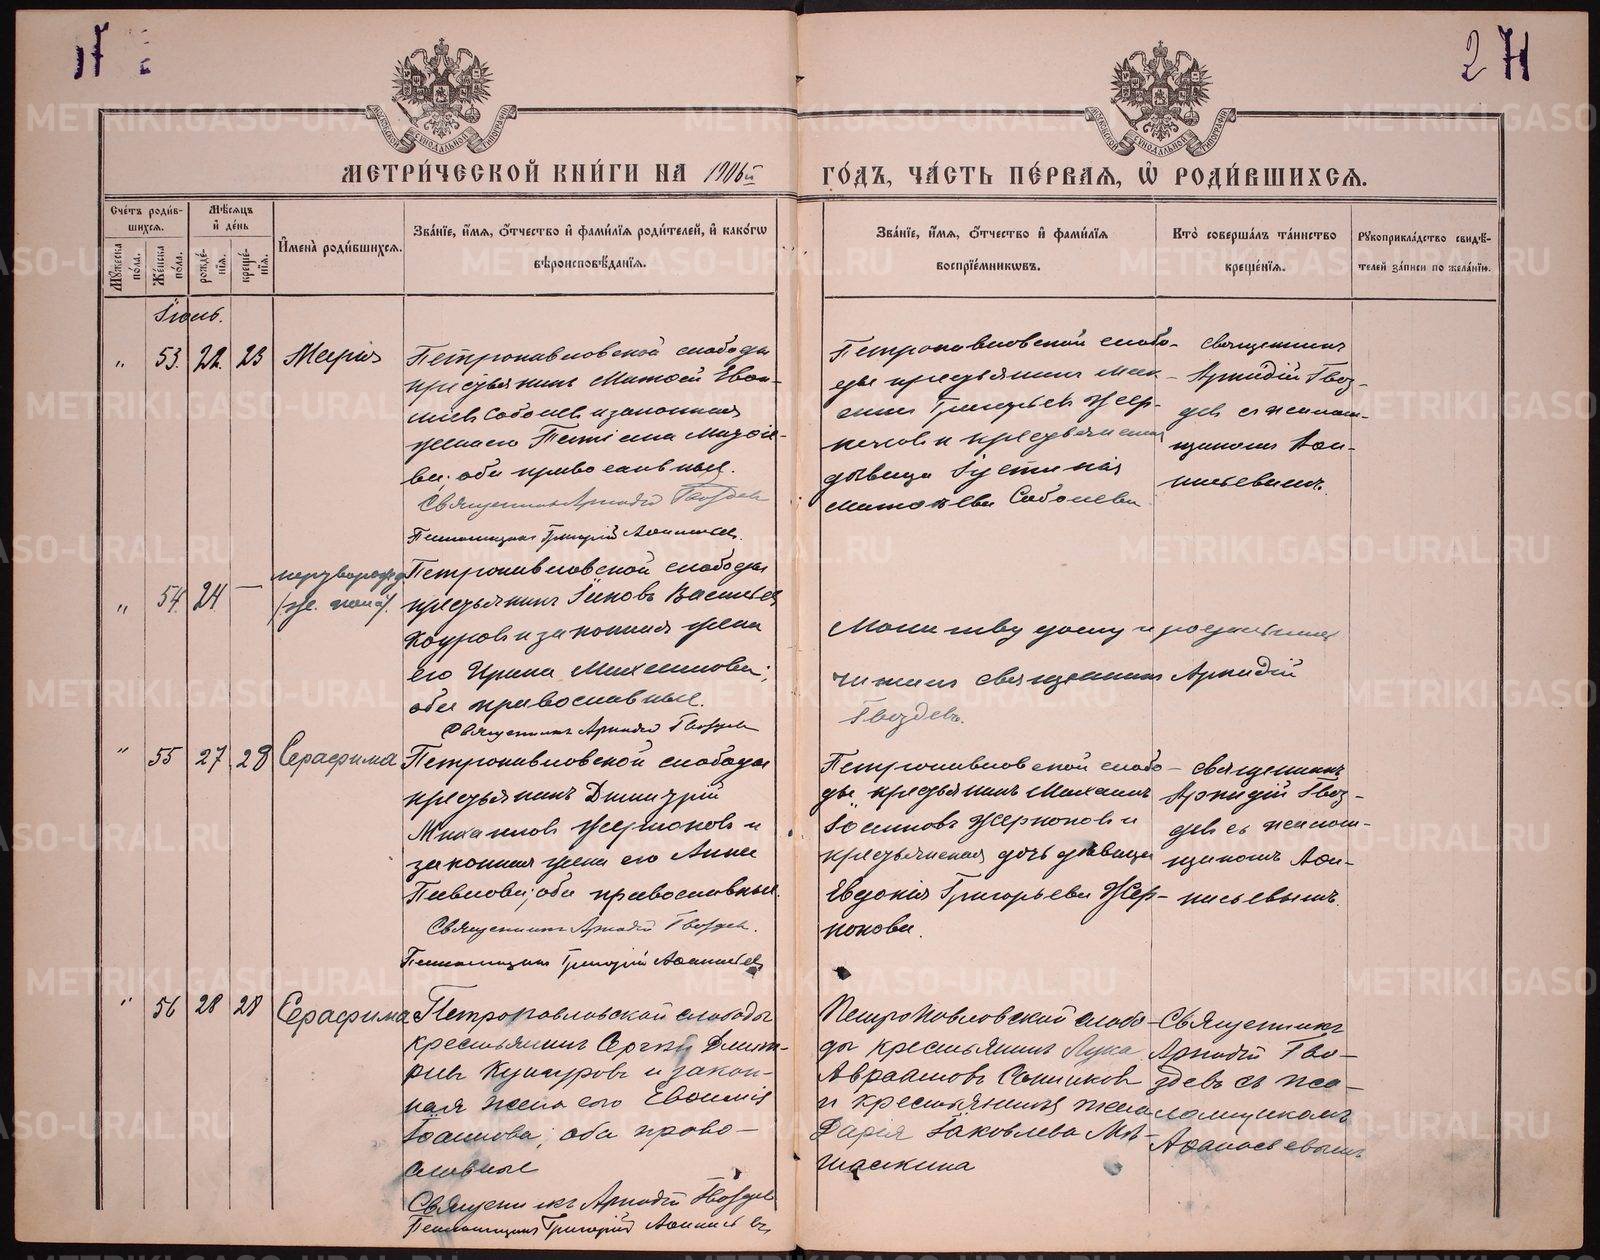 17
271
МЕТРИ́ЧЕСКОЙ КНИ́ГИ НА 1906й ГО́ДЪ, ЧА́СТЬ ПЕ́РВАЯ, Ѡ҆ РОДИ́ВШИХСЯ.
Сче́тъ роди́в-
шихся.
Мѣ́сяцъ
и҆ де́нь
Мꙋ́жеска по́ла.
Же́нска по́ла.
рожде́-
нїя.
креще́-
нїя.
И҆мена̀ роди́вшихся.
Зва́нїе, и҆́мя, ѻ҆́тчество и҆ фами́лїя роди́телей, и҆ како́гѡ
вѣроисповѣ́данїя.
Зва́нїе, и҆́мя, ѻ҆́тчество и҆ фами́лїя
воспрїе́мникѡвъ.
Кто̀ соверша́лъ та́инство
креще́нїя.
Рꙋкоприкла́дство свидѣ́-
телей за́писи по жела́нїю.
Іюль.
" 53. 22. 23 Марія
Петропавловской слободы
крестьянинъ Матѳей
Соболевъ и законная
жена его
ва; оба православные.
Священникъ Аркадій Гвоздевъ
Псаломщикъ Григорій Аѳанасьевъ
Петропавловской слобо-
ды крестьянинъ Мак-
симъ Григорьевъ Жер-
ноковъ и крестьянская
дѣвица Іустинія
Матѳѣева Соболева.
Священникъ
Аркадій Гвоз-
девъ съ псалом-
щикомъ Аѳа-
насьевымъ.
" 54. 24 —
/же. пола/.
Петропавловской слободы
крестьянинъ Іаковъ Васильевъ
и законная жена
его Ирина Михаилова;
оба православные.
Священникъ Аркадій Гвоздевъ
Молитву дому и родильницѣ
читалъ священникъ Аркадій
Гвоздевъ.
" 55 27 28 Серафима
Петропавловской слободы
крестьянинъ Димитрій
Михаиловъ Жерноковъ и
законная жена его Анна
Павлова; оба православные.
Священникъ Аркадій Гвоздевъ.
Псаломщикъ Григорій Аѳанасьевъ
Петропавловской слобо-
ды крестьянинъ Михаилъ
Іоанновъ Жерноковъ и
крестьянская дочь дѣвица
Евдокія Григорьева Жер-
нокова.
Священникъ
Аркадій Гвоз-
девъ съ псалом-
щикомъ Аѳа-
насьевымъ.
" 56 28 28 Серафима
Петропавловской слободы
крестьянинъ Сергѣй Димит-
ріевъ и закон-
ная жена его Евѳимія
Іоаннова; оба право-
славные
Священникъ Аркадій Гвоздевъ
Псаломщикъ Григорій Аѳанасьевъ
Петропавловской слобо-
ды крестьянинъ Лука
Авраамовъ
и крестьянина жена
Дарія Іаковлева
Священникъ
Аркадій Гво-
здевъ съ пса-
ломщикомъ
Аѳанасьевымъ
METRIKI.GASO-URAL.RU